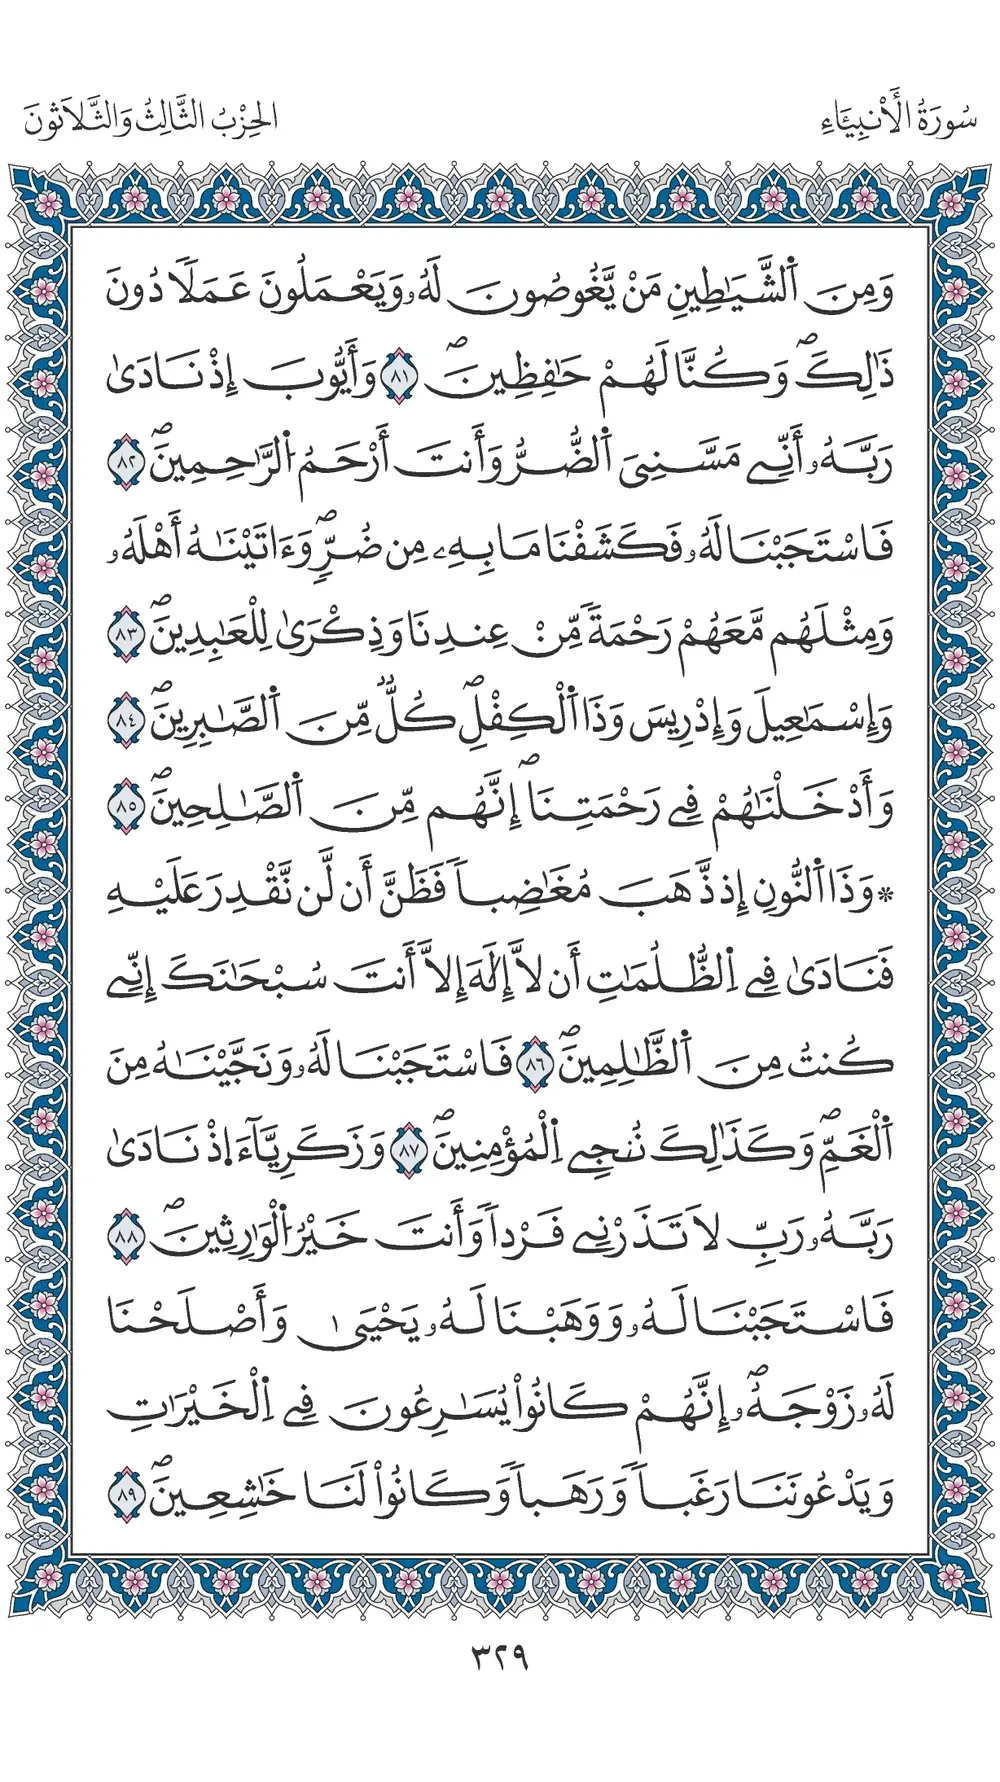 سُورَةُ الأَنْبِيَاءِ
الحِزْبُ الثَّالِثُ وَالثَّلاَثُونَ
وَمِنَ اَ۬لشَّيَٰطِينِ مَنْ يَّغُوصُونَ لَهُۥ وَيَعْمَلُونَ عَمَلاٗ دُونَ
ذَٰلِكَۖ وَكُنَّا لَهُمْ حَٰفِظِينَۖ ٨١ وَأَيُّوبَ إِذْ نَادَىٰ
رَبَّهُۥٓ أَنِّے مَسَّنِيَ اَ۬لضُّرُّ وَأَنتَ أَرْحَمُ اُ۬لرَّٰحِمِينَۖ ٨٢
فَاسْتَجَبْنَا لَهُۥ فَكَشَفْنَا مَا بِهِۦ مِن ضُرّٖۖ وَءَاتَيْنَٰهُ أَهْلَهُۥ
وَمِثْلَهُم مَّعَهُمْ رَحْمَةٗ مِّنْ عِندِنَا وَذِكْرَىٰ لِلْعَٰبِدِينَۖ ٨٣
وَإِسْمَٰعِيلَ وَإِدْرِيسَ وَذَا اَ۬لْكِفْلِۖ كُلّٞ مِّنَ اَ۬لصَّٰبِرِينَۖ ٨٤
وَأَدْخَلْنَٰهُمْ فِے رَحْمَتِنَاۖ إِنَّهُم مِّنَ اَ۬لصَّٰلِحِينَۖ ٨٥
* وَذَا اَ۬لنُّونِ إِذ ذَّهَبَ مُغَٰضِباٗ فَظَنَّ أَن لَّن نَّقْدِرَ عَلَيْهِ
فَنَادَىٰ فِے اِ۬لظُّلُمَٰتِ أَن لَّآ إِلَٰهَ إِلَّآ أَنتَ سُبْحَٰنَكَ إِنِّے
كُنتُ مِنَ اَ۬لظَّٰلِمِينَۖ ٨٦ فَاسْتَجَبْنَا لَهُۥ وَنَجَّيْنَٰهُ مِنَ
اَ۬لْغَمِّۖ وَكَذَٰلِكَ نُۨجِے اِ۬لْمُؤْمِنِينَۖ ٨٧ وَزَكَرِيَّآءَ اِ۪ذْ نَادَىٰ
رَبَّهُۥ رَبِّ لَا تَذَرْنِے فَرْداٗ وَأَنتَ خَيْرُ اُ۬لْوَٰرِثِينَۖ ٨٨
فَاسْتَجَبْنَا لَهُۥ وَوَهَبْنَا لَهُۥ يَحْيَىٰ وَأَصْلَحْنَا
لَهُۥ زَوْجَهُۥٓۖ إِنَّهُمْ كَانُواْ يُسَٰرِعُونَ فِے اِ۬لْخَيْرَٰتِ
وَيَدْعُونَنَا رَغَباٗ وَرَهَباٗ وَكَانُواْ لَنَا خَٰشِعِينَۖ ٨٩
٣٢٩